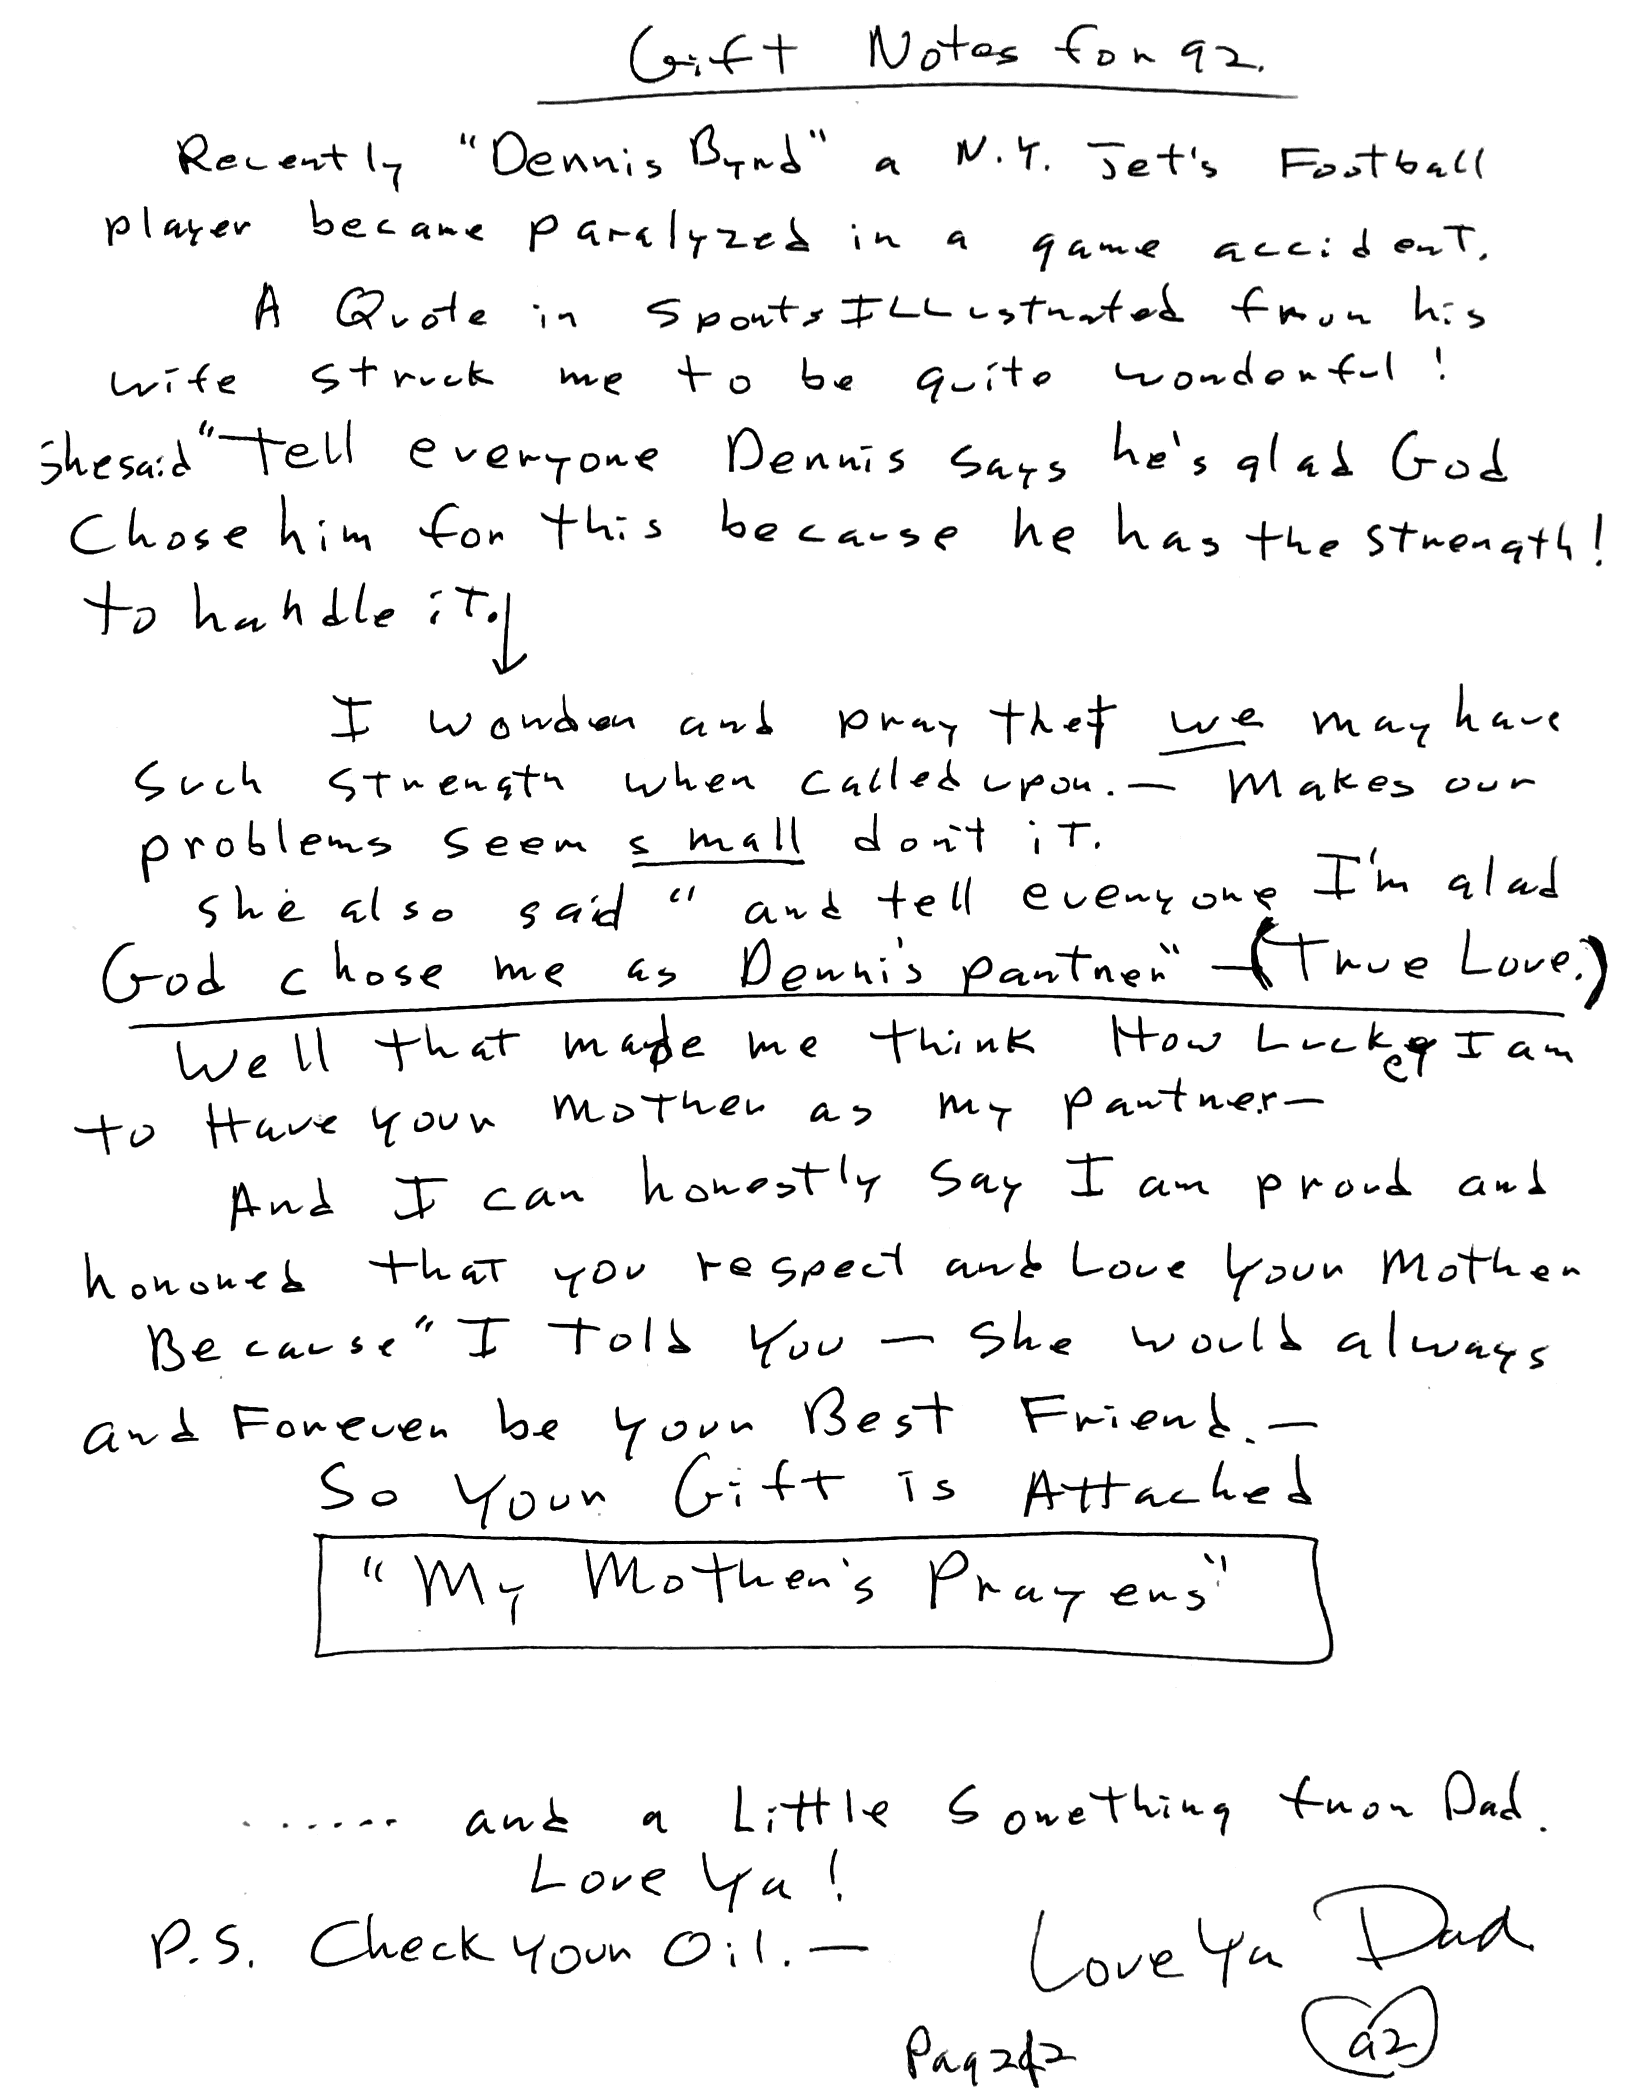 Gift Notes for 92.
Recently "Dennis Byrd" a N.Y. Jet's Football
player became paralyzed in a game accident.
A Quote in Sports ILLustrated from his
wife struck me to be quite wonderful!
She said "Tell everyone Dennis says he's glad God
Chose him for this because he has the strength!
to handle it.↓
I wonder and pray that we may have
Such strength when called upon. — Makes our
problems seem small don't it.
She also said " and tell everyone I'm glad
God chose me as Dennis partner" — (True Love.)
Well that made me think How Luckey I am
to Have your mother as my partner —
And I can honestly say I am proud and
honored that you respect and Love your Mother
Because "I Told You — She would always
and Forever be your Best Friend. —
So Your Gift is Attached
"My Mother's Prayers"
...... and a Little Something from Dad.
Love Ya!
P.S. Check your Oil. —
Love Ya Dad
92
Pag 2 of 2